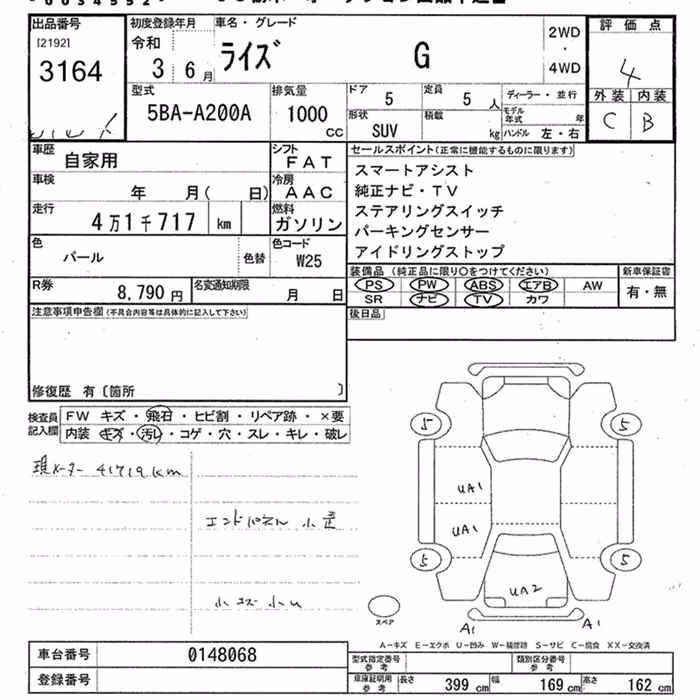 出品番号 [2192] 3164
初度登録年月 令和 3 6月
車名・グレード ライズ G
2WD・4WD
評価点 4
外装 内装
C B
型式 5BA-A200A
排気量 1000 CC
ドア 5 定員 5人
形状 SUV 積載 kg
ディーラー・並行
モデル年式 年
ハンドル 左・右
車歴 自家用
シフト FAT
車検 年 月( 日)
冷房 AAC
走行 4万1千717 km
燃料 ガソリン
色 パール 色替
色コード W25
R券 8,790円
名変通知期限 月 日
セールスポイント(正常に機能するものに限ります)
スマートアシスト
純正ナビ・TV
ステアリングスイッチ
パーキングセンサー
アイドリングストップ
装備品(純正品に限り○をつけてください) 新車保証書
PS PW ABS エアB AW 有・無
SR ナビ TV カワ
後日品
注意事項申告欄(不具合内容等は具体的に記入して下さい)
修復歴 有〔箇所 〕
検査員記入欄
FW キズ・飛石・ヒビ割・リペア跡・×要
内装 キズ・汚レ・コゲ・穴・スレ・キレ・破レ
現メーター 41719km
エンドパネル 小歪
小キズ 小凹
5 5
UA1
UA1
5 5
UA2
スペア
A1 A1
A-キズ E-エクボ U-凹み W-補修跡 S-サビ C-腐食 XX-交換済
車台番号 0148068
登録番号
型式指定番号 参考 類別区分番号 参考
車庫証明用 参考 長さ 399cm 幅 169cm 高さ 162cm